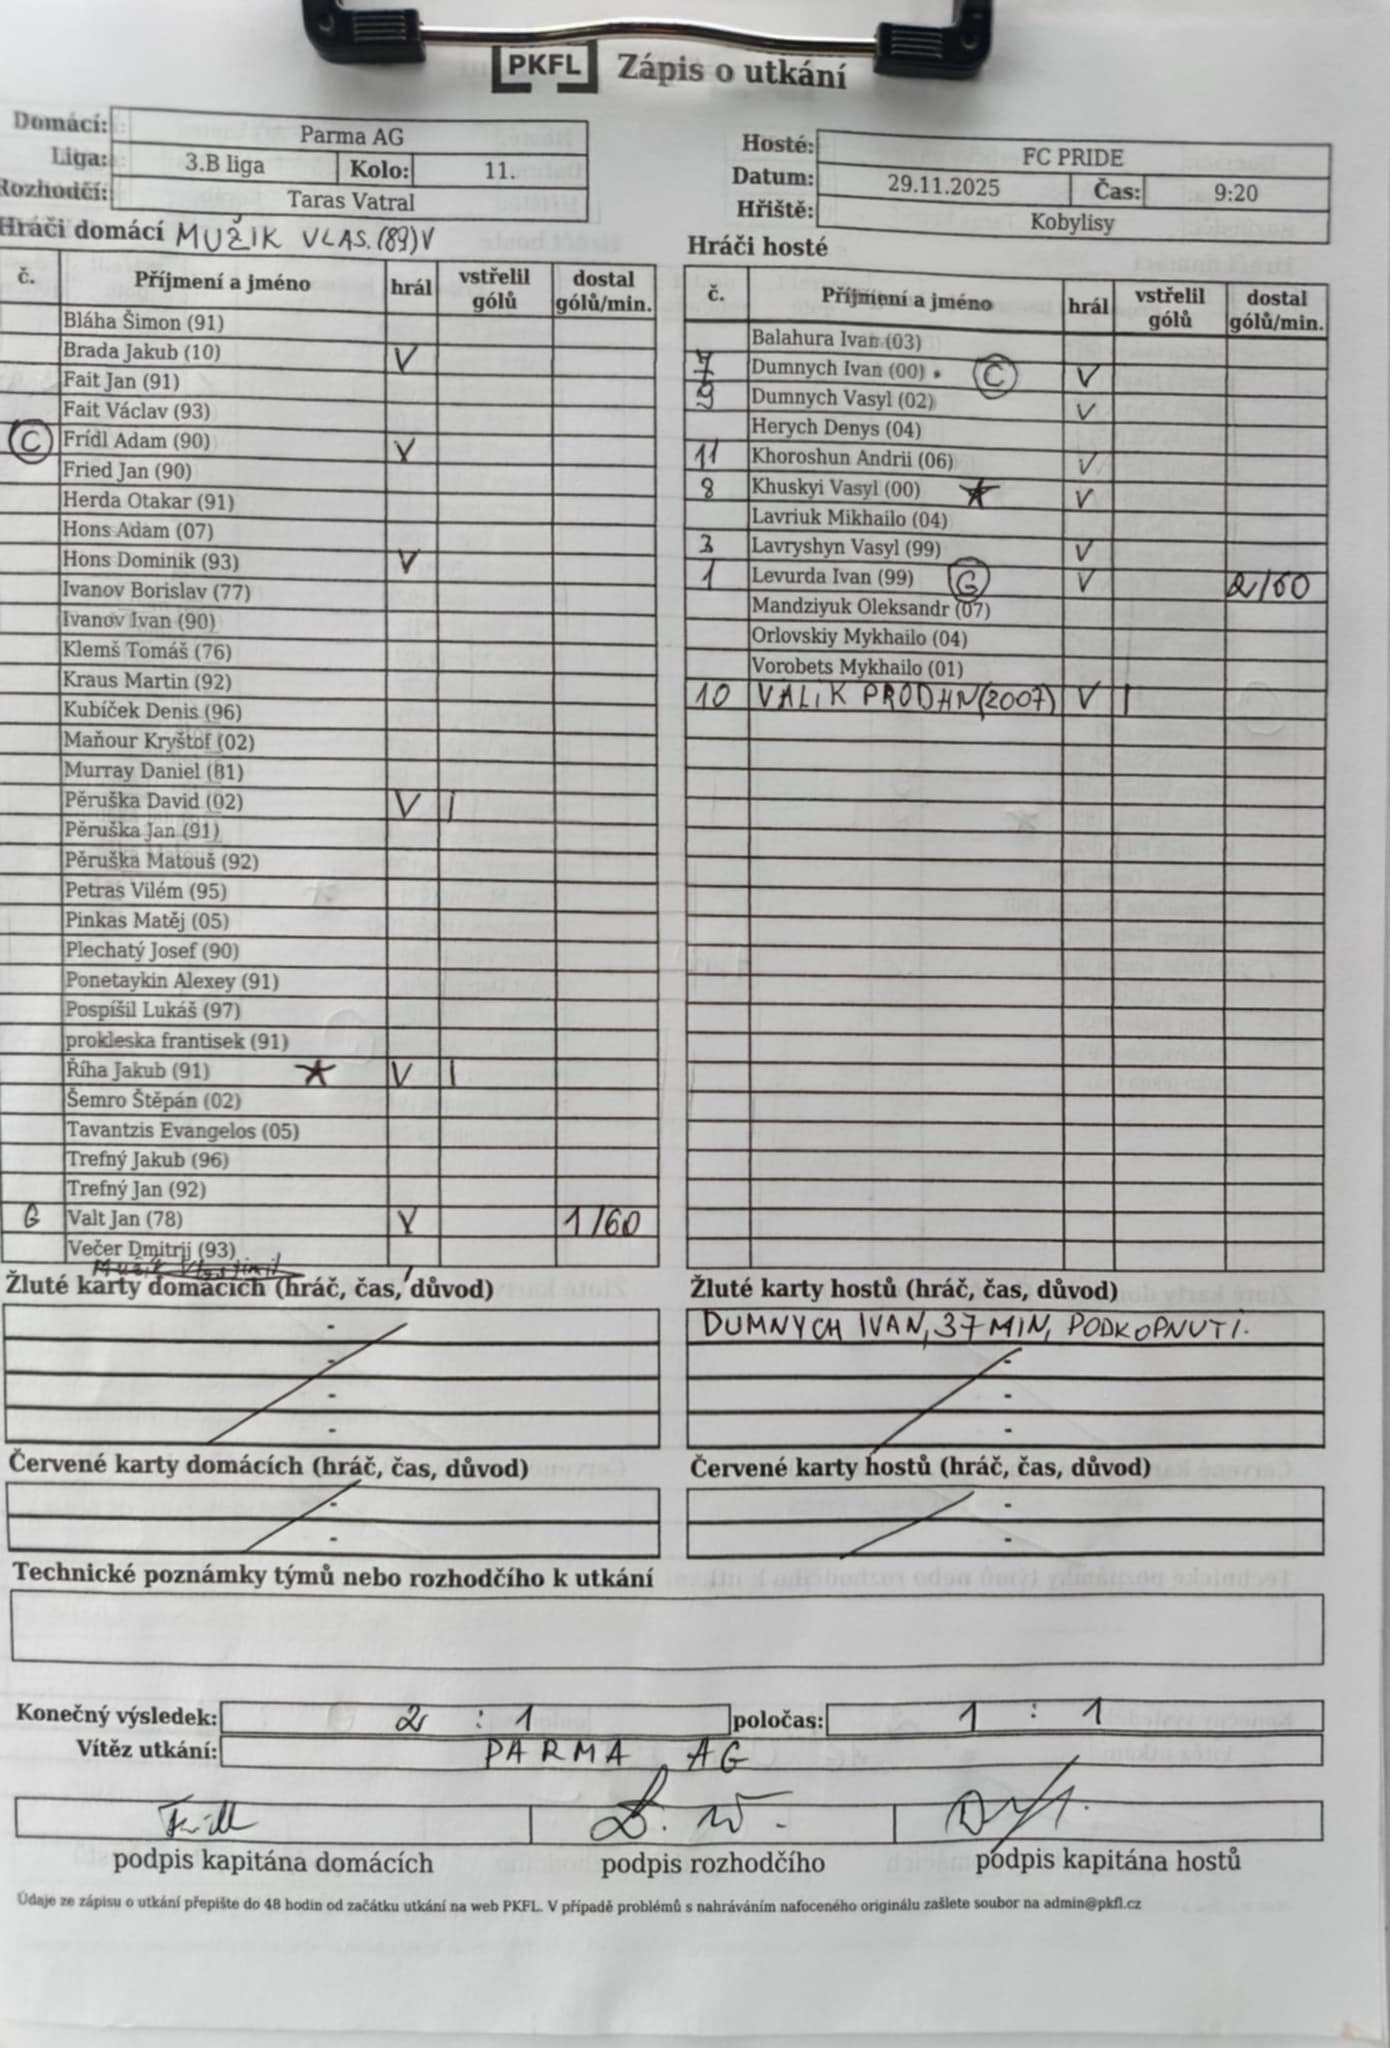 PKFL Zápis o utkání
Domácí: Parma AG
Liga: 3.B liga Kolo: 11.
Rozhodčí: Taras Vatral
Hosté: FC PRIDE
Datum: 29.11.2025 Čas: 9:20
Hřiště: Kobylisy
Hráči domácí MUŽIK VLAS.(89) V
č. Příjmení a jméno hrál vstřelil gólů dostal gólů/min.
Bláha Šimon (91)
Brada Jakub (10) V
Fait Jan (91)
Fait Václav (93)
C Frídl Adam (90) V
Fried Jan (90)
Herda Otakar (91)
Hons Adam (07)
Hons Dominik (93) V
Ivanov Borislav (77)
Ivanov Ivan (90)
Klemš Tomáš (76)
Kraus Martin (92)
Kubíček Denis (96)
Maňour Kryštof (02)
Murray Daniel (81)
Pěruška David (02) V I
Pěruška Jan (91)
Pěruška Matouš (92)
Petras Vilém (95)
Pinkas Matěj (05)
Plechatý Josef (90)
Ponetaykin Alexey (91)
Pospíšil Lukáš (97)
prokleska frantisek (91)
Říha Jakub (91) ★ V I
Šemro Štěpán (02)
Tavantzis Evangelos (05)
Trefný Jakub (96)
Trefný Jan (92)
G Valt Jan (78) V 1/60
Večer Dmitrij (93)
Hráči hosté
č. Příjmení a jméno hrál vstřelil gólů dostal gólů/min.
Balahura Ivan (03)
7 Dumnych Ivan (00) • C V
9 Dumnych Vasyl (02) V
Herych Denys (04)
11 Khoroshun Andrii (06) V
8 Khuskyi Vasyl (00) ★ V
Lavriuk Mikhailo (04)
3 Lavryshyn Vasyl (99) V
1 Levurda Ivan (99) G V 2/60
Mandziyuk Oleksandr (07)
Orlovskiy Mykhailo (04)
Vorobets Mykhailo (01)
10 VALIK PRODHN(2007) V I
Žluté karty domácích (hráč, čas, důvod)
-
-
-
-
Žluté karty hostů (hráč, čas, důvod)
DUMNYCH IVAN, 37 MIN, PODKOPNUTÍ.
-
-
-
Červené karty domácích (hráč, čas, důvod)
-
-
Červené karty hostů (hráč, čas, důvod)
-
-
Technické poznámky týmů nebo rozhodčího k utkání
Konečný výsledek: 2 : 1 poločas: 1 : 1
Vítěz utkání: PARMA AG
podpis kapitána domácích podpis rozhodčího podpis kapitána hostů
Údaje ze zápisu o utkání přepište do 48 hodin od začátku utkání na web PKFL. V případě problémů s nahráváním nafoceného originálu zašlete soubor na admin@pkfl.cz